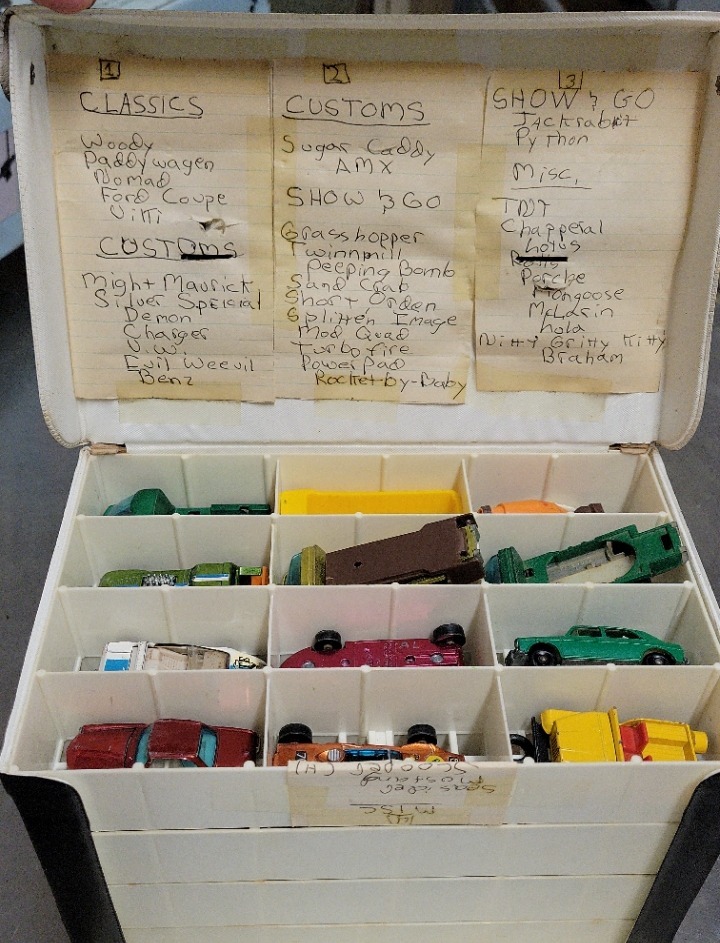 1
CLASSICS
Woody
Paddywagen
Nomad
Ford Coupe
Vitti
CUSTOMS
Might Maurick
Silver Special
Demon
Charger
V.W.
Evil Weevil
Benz
2
CUSTOMS
Sugar Caddy
AMX
SHOW & GO
Grasshopper
Twinnmill
Peeping Bomb
Sand Crab
Short Orden
Splitten Image
Mod Quad
Turbofire
PowerPad
Rocket-by-Baby
3
SHOW & GO
Jackrabit
Python
Misc.
TNT
Chapperal
Lotus
Porche
Mongoose
McLarin
Lola
Nitty Gritty Kitty
Braham
MISC
Seasider
Mustang